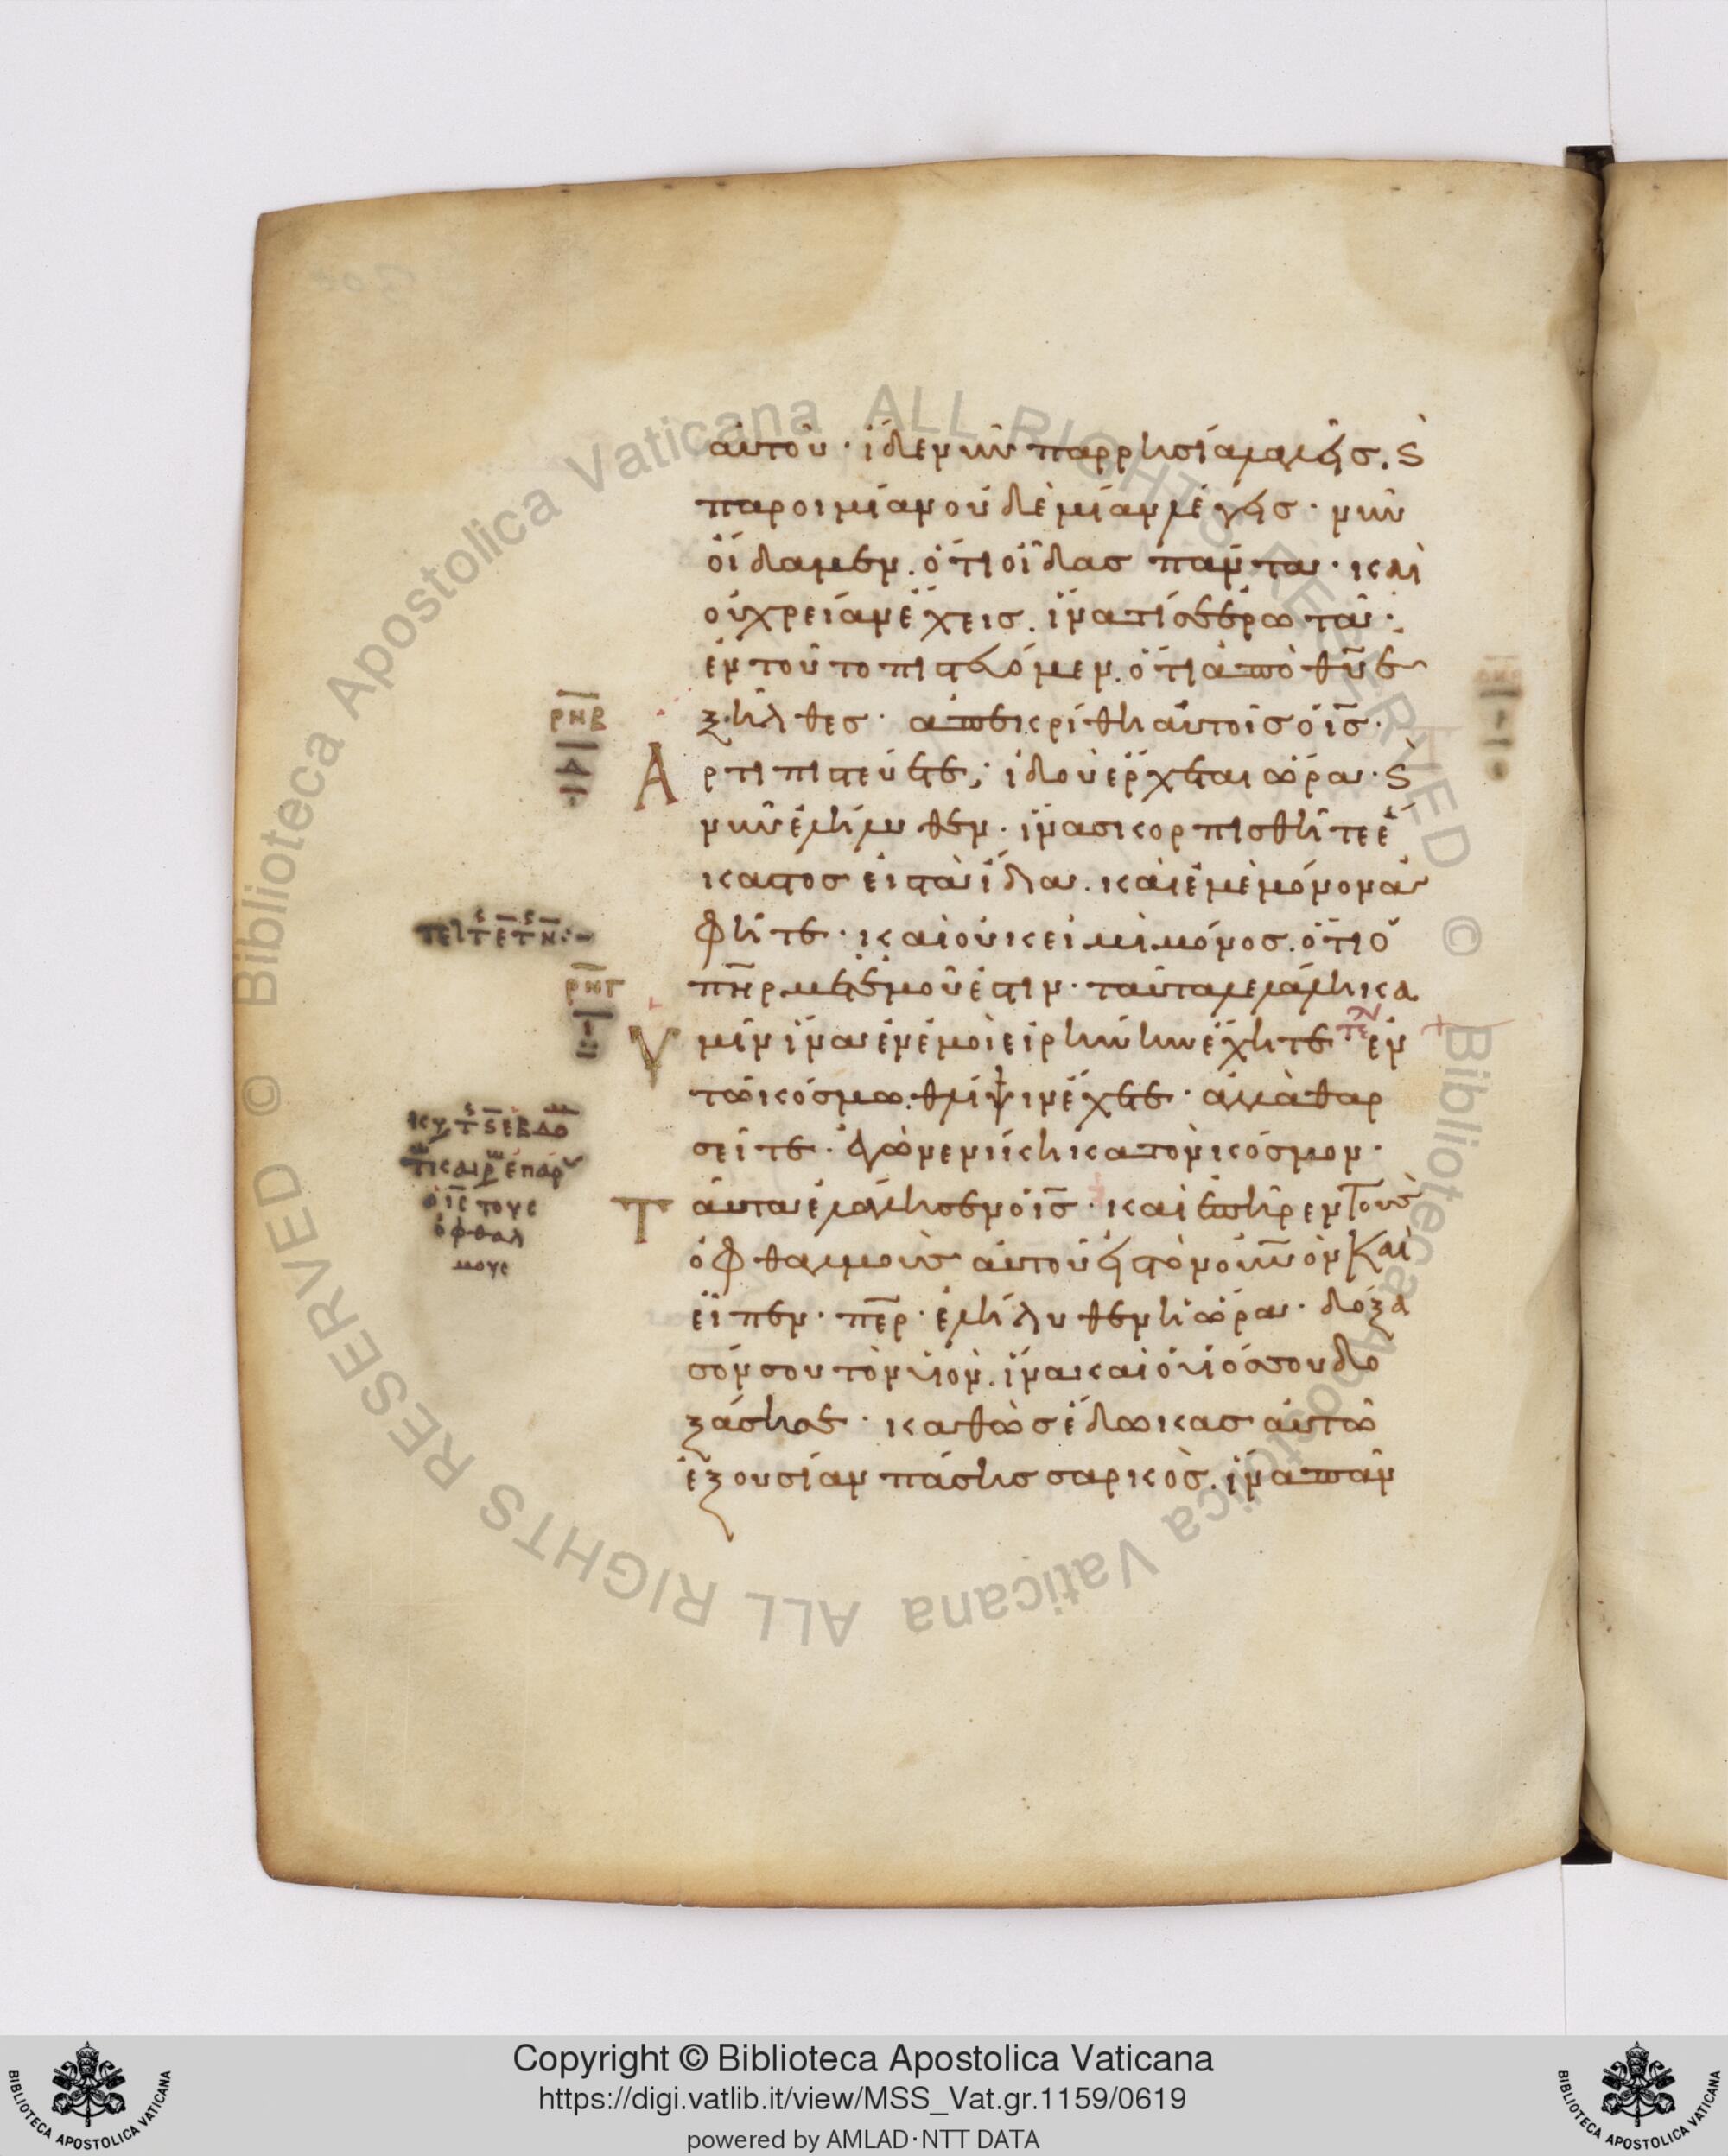 αὐτοῦ· ἴδε νῦν παρρησία λαλεῖς. ϗ
παροιμίαν οὐδὲ μίαν λέγεις· νῦν
οἴδαμεν. ὅτι οἶδας πάντα· καὶ
οὐ χρείαν ἔχεις. ἵνα τίς σε ἐρωτᾶ·
ἐν τούτο πιστεύομεν. ὅτι ἀπὸ θῡ ἐ
ξῆλθες· ἀπεκρίθη αὐτοῖς ὁ ις̄·
ρνβ
Ἄρτι πιστεύετε; ἰδοὺ ἔρχεται ὥρα· ϗ
νῦν ἐλήλυθεν· ἵνα σκορπισθῆτε ἕ
καστος εἰς τὰ ἴδια. καὶ ἐμὲ μόνον ἀ
φῆτε· καὶ οὐκ εἰμὶ μόνος. ὅτι ὁ
ρνγ
πη̄ρ μετ' ἐμοῦ ἐστιν· ταῦτα λελάληκα
Ὑμῖν ἵνα ἐν ἐμοὶ εἰρήνην ἔχητε ἐν
τῶ κόσμω. θλίψιν ἔχετε· ἀλλὰ θαρ
σεῖτε· ἐγὼ νενίκηκα τὸν κόσμον·
Ταῦτα ἐλάλησεν ὁ ις̄· καὶ ἐπῆρεν τοὺς
ὀφθαλμοὺς αὐτοῦ εἰς τὸν οὐν̄ον καὶ
εἶπεν· πε̄ρ· ἐλήλυθεν ἡ ὥρα· δόξα
σόν σου τὸν υἱόν. ἵνα καὶ ὁ υἱός σου δο
ξάση σέ· καθὼς ἔδωκας αὐτῶ
ἐξουσίαν πάσης σαρκὸς. ἵνα πᾶν
ὁ ις̄ τους
ὀφθαλ
μους
Copyright © Biblioteca Apostolica Vaticana
https://digi.vatlib.it/view/MSS_Vat.gr.1159/0619
powered by AMLAD·NTT DATA
BIBLIOTECA APOSTOLICA VATICANA
BIBLIOTECA APOSTOLICA VATICANA
© Biblioteca Apostolica Vaticana ALL RIGHTS RESERVED © Biblioteca Apostolica Vaticana ALL RIGHTS RESERVED